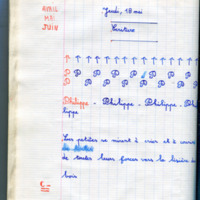 AVRIL
MAI
JUIN
Jeudi, 18 mai
Ecriture
P P P P P P P P
P P P P P P P P P
Philippe - Philippe - Philippe - Phi
lippe
Les petites se mirent à crier et à courir
de toutes leurs forces vers la lisière du
bois